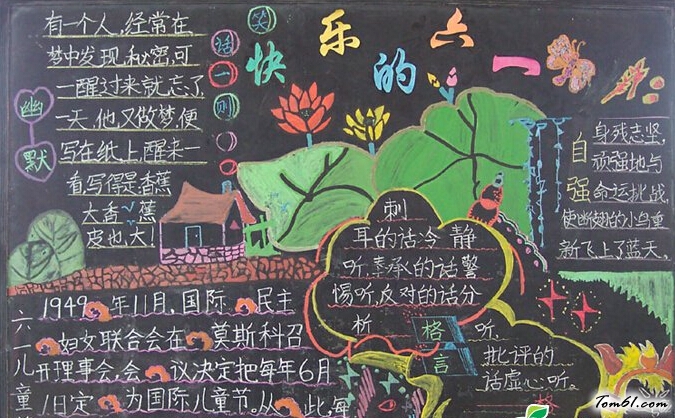 快乐的六一
笑话一则
幽默
有一个人,经常在
梦中发现秘密,可
一醒过来就忘了
一天,他又做梦,便
写在纸上,醒来一
看写得是香蕉
大香蕉
皮也大!
自强
身残志坚,
顽强地与
命运挑战,
使断翅的小鸟重
新飞上了蓝天。
刺
耳的话冷静
听,奉承的话警
惕听,反对的话分
析听,
批评的
话虚心听。
格言
六一儿童
1949年11月,国际民主
妇女联合会在莫斯科召
开理事会,会议决定把每年6月
1日定为国际儿童节。从此,每
Tom61.com